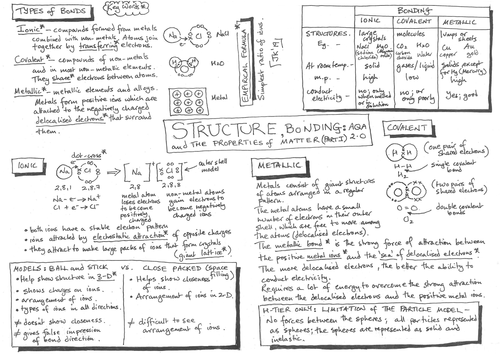 TYPES OF BONDS
Key Words *
Ionic* – compounds formed from metals
combined with non-metals. Atoms join
together by transferring electrons.
Covalent* – compounds of non-metals
and in most non-metallic elements.
They share electrons between atoms.
Metallic* – metallic elements and alloys.
Metals form positive ions which are
attached to the negatively charged
delocalised electrons* that surround
them.
Na Cl NaCl
H H H₂O
Metal
EMPIRICAL FORMULA*
Simplest ratio of ions.
JK19
BONDING
IONIC COVALENT METALLIC
STRUCTURES. large crystals molecules lumps or sheets
Eg. – NaCl MgO CO₂ H₂O Cu Au
water copper gold
At room temp. – solid gases/liquid solids except for Hg (mercury)
m.p. – high low high
conduct electricity – no; only when melted or in solution no; or only poorly Yes; good
STRUCTURE, BONDING: AQA
and THE PROPERTIES OF MATTER (PART 1) 2.0
IONIC
dot-cross*
outer shell model
Na Cl
2,8,1 2,8,7
Na 2,8 Cl 2,8,8
Na – e⁻ → Na⁺
Cl + e⁻ → Cl⁻
metal atom loses electrons to become positively charged
non-metal atoms gain electrons to become negatively charged ions
• both ions have a stable electron pattern
• ions attracted by electrostatic attraction* of opposite charges
• they attract to make large packs of ions that form crystals
(giant lattice*)
MODELS: BALL and STICK vs. CLOSE PACKED (space filling)
• Help show structure in 3-D
• shows charges on ions
• arrangement of ions
• types of ions in all directions
≠ doesn't show closeness.
≠ gives false impression of bond direction.
• Helps show closeness of ions.
• Arrangement of ions in 2-D.
≠ difficult to see arrangement of ions.
METALLIC
Metals consist of giant structures
of atoms arranged in a regular
pattern.
The metal atoms have a small
number of electrons in their outer
shell, which are free to move among
the atoms (delocalised electrons).
The metallic bond* is the strong force of attraction between
the positive metal ions and the 'sea' of delocalised electrons*
The more delocalised electrons, the better the ability to
conduct electricity.
Requires a lot of energy to overcome the strong attraction
between the delocalised electrons and the positive metal ions.
COVALENT
H H
(one pair of shared electrons)
H – H
single covalent bond
O O
(two pairs of shared electrons)
O = O
O₂
double covalent bond
H-TIER ONLY: LIMITATION OF THE PARTICLE MODEL –
No forces between the spheres; all particles represented
as spheres; the spheres are represented as solid and
inelastic.